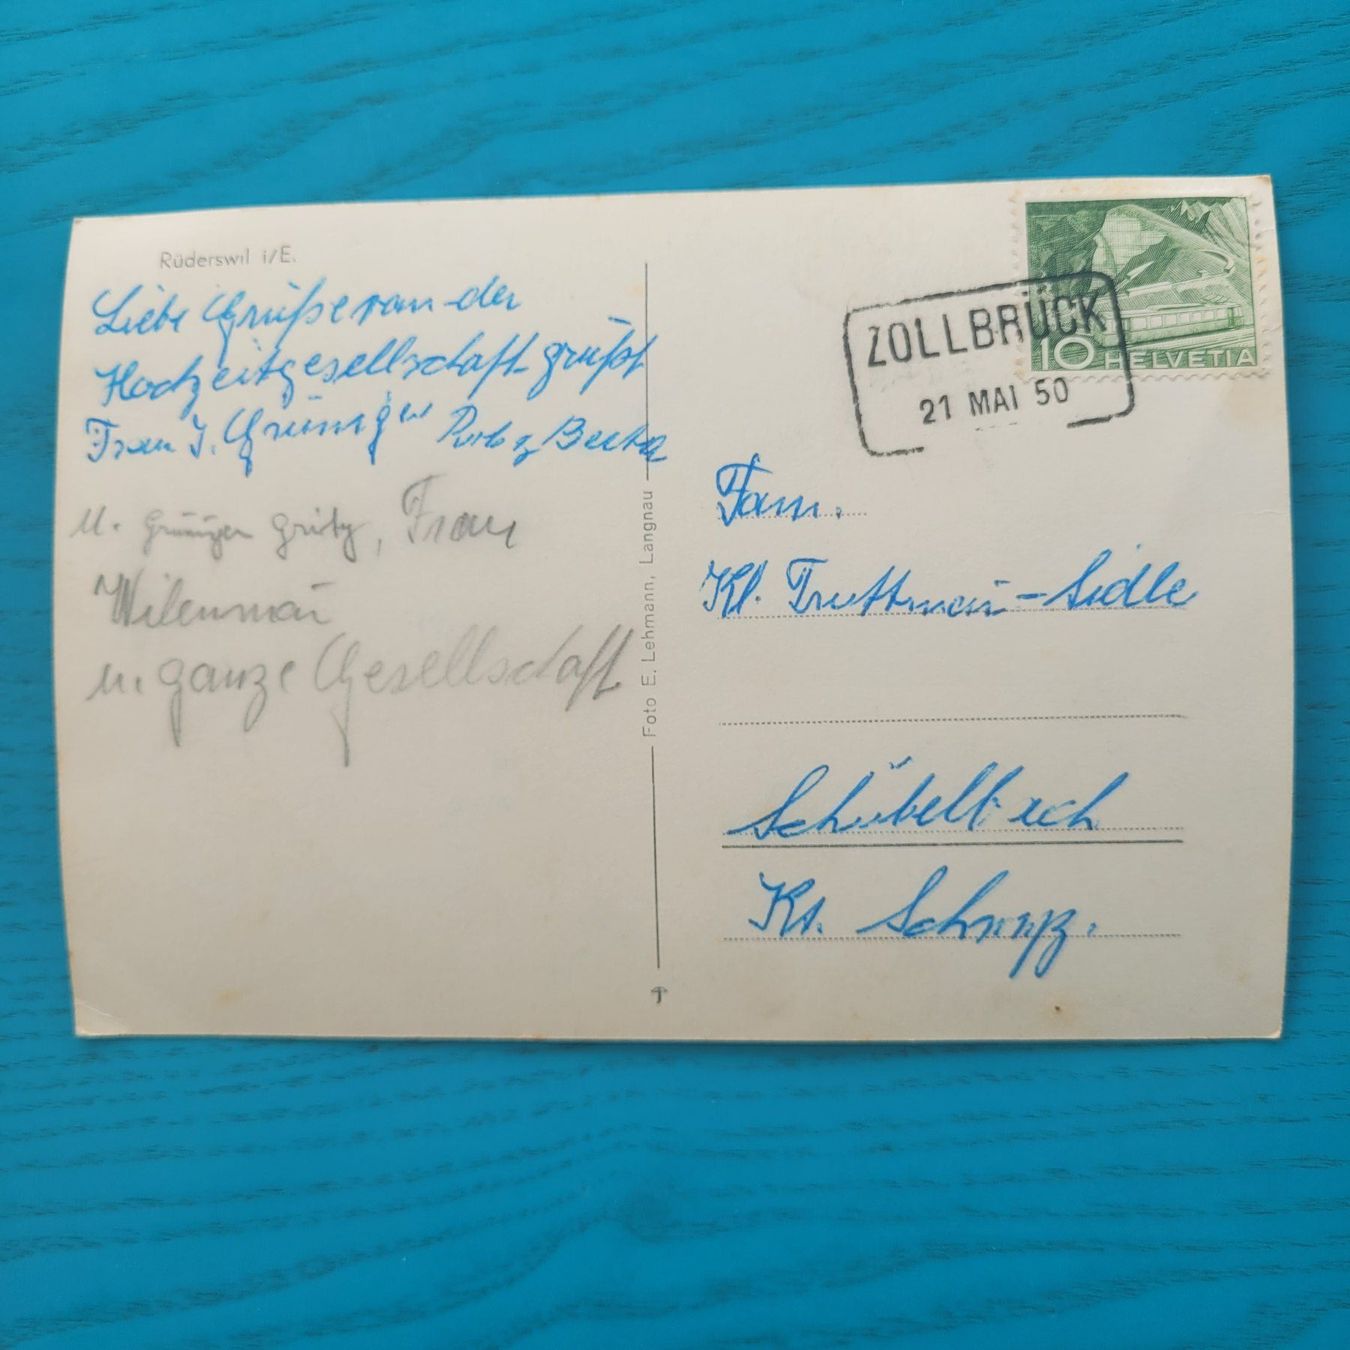 Rüderswil i/E.
Liebe Grüße von der
Hochzeitgesellschaft grüßt
Frau J. Grüniger Berta
u. Grüniger Fritz, Frau
u. ganze Gesellschaft
Foto E. Lehmann, Langnau
ZOLLBRÜCK
21 MAI 50
10 HELVETIA
Fam.
Kl. Truttman-Sidle
Schübelbach
Kt. Schwyz.